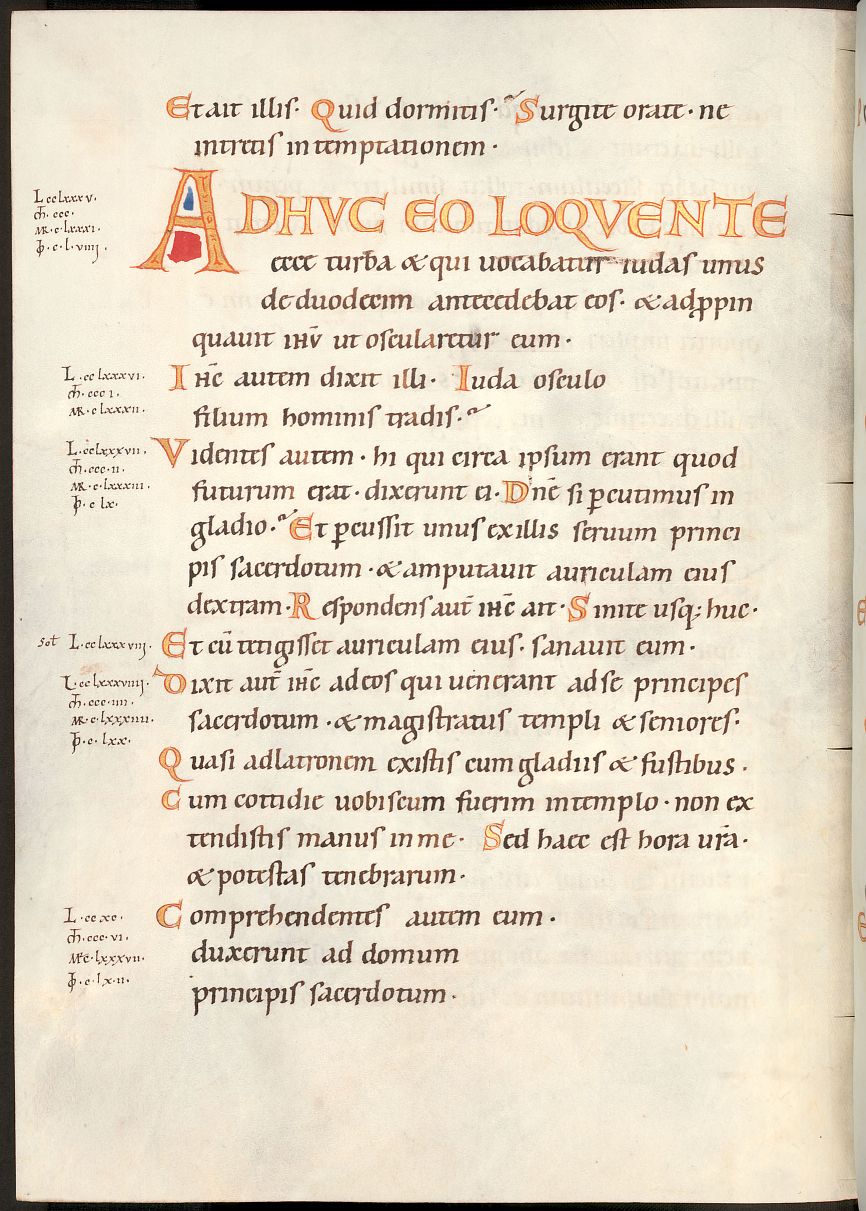 Et ait illis. Quid dormitis. Surgite orate. ne
intretis in temptationem.
L cclxxxv.
m̄. ccc.
MR. c. lxxxi.
ꝑ. c. l. viiii.
ADHVC EO LOQVENTE
ecce turba & qui uocabatur iudas unus
de duodecim antecedebat eos. & adpropin
quauit ihv̄ ut oscularetur eum.
L. cclxxxvi.
m̄. ccc i.
MR. c lxxxii.
Ihc̄ autem dixit illi. Iuda osculo
filium hominis tradis.
L. cclxxxvii.
m̄. ccc. ii.
MR. c. lxxxiii.
ꝑ. c lx.
Videntes autem. hi qui circa ipsum erant quod
futurum erat. dixerunt ei. Dn̄e si ꝑcutimus in
gladio. Et ꝑcussit unus ex illis seruum princi
pis sacerdotum. & amputauit auriculam eius
dextram. Respondens aut̄ ihc̄ ait. Sinite usq; huc.
Sol̄ L. cclxxxviii.
Et cū tetigisset auriculam eius. sanauit eum.
L. cclxxxviiii.
m̄. ccc. iiii.
MR. c. lxxxiiii.
ꝑ. c. lxx.
Dixit aut̄ ihc̄ ad eos qui uenerant ad se principes
sacerdotum. & magistratus templi & seniores.
Quasi ad latronem existis cum gladiis & fustibus.
Cum cottidie uobiscum fuerim in templo. non ex
tendistis manus in me. Sed haec est hora ur̄a.
& potestas tenebrarum.
L. cc xc.
m̄. ccc. vi.
MR̄. c. lxxxvii.
ꝑ. c. l x. ii.
Comprehendentes autem eum.
duxerunt ad domum
principis sacerdotum.